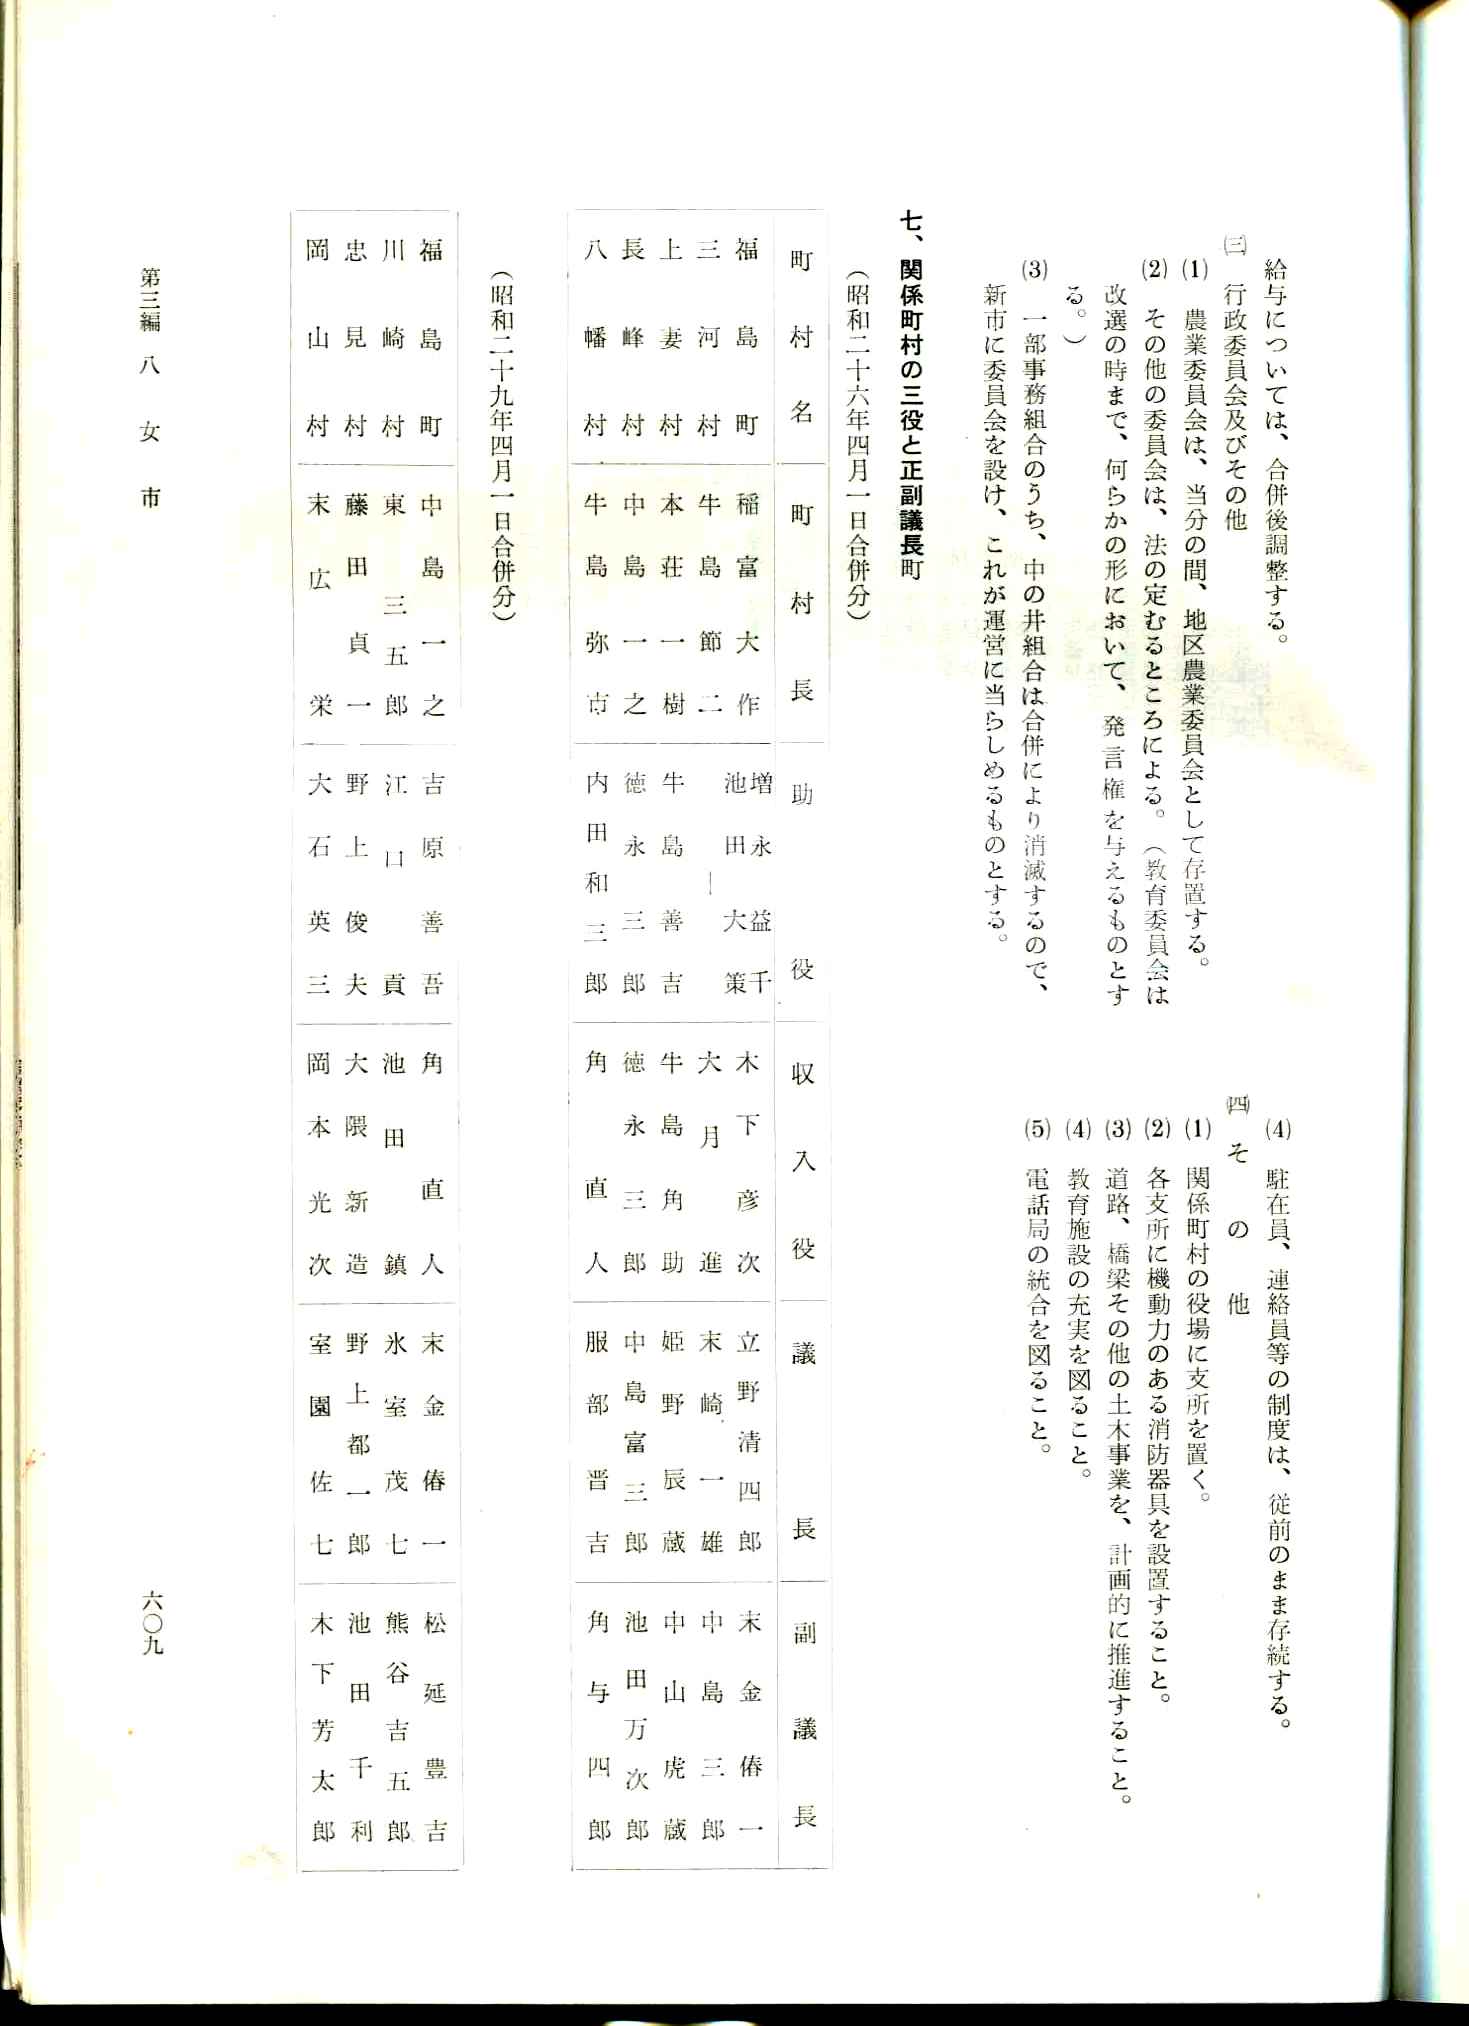 給与については、合併後調整する。
㈢ 行政委員会及びその他
(1) 農業委員会は、当分の間、地区農業委員会として存置する。
(2) その他の委員会は、法の定むるところによる。（教育委員会は
改選の時まで、何らかの形において、発言権を与えるものとす
る。）
(3) 一部事務組合のうち、中の井組合は合併により消滅するので、
新市に委員会を設け、これが運営に当らしめるものとする。
(4) 駐在員、連絡員等の制度は、従前のまま存続する。
㈣ その他
(1) 関係町村の役場に支所を置く。
(2) 各支所に機動力のある消防器具を設置すること。
(3) 道路、橋梁その他の土木事業を、計画的に推進すること。
(4) 教育施設の充実を図ること。
(5) 電話局の統合を図ること。
七、関係町村の三役と正副議長町
（昭和二十六年四月一日合併分）
町村名 町村長 助役 収入役 議長 副議長
福島町 稲富大作 増永益千 池田大策 木下彦次 立野清四郎 末金偆一
三河村 牛島節二 ― 大月進 末崎一雄 中島三郎
上妻村 本荘一樹 牛島善吉 牛島角助 姫野辰蔵 中山虎蔵
長峰村 中島一之 徳永三郎 徳永三郎 中島富三郎 池田万次郎
八幡村 牛島弥市 内田和三郎 角直人 服部晋吉 角与四郎
（昭和二十九年四月一日合併分）
福島町 中島一之 吉原善吾 角直人 末金偆一 松延豊吉
川崎村 東三五郎 江口貢 池田鎮 氷室茂七 熊谷吉五郎
忠見村 藤田貞一 野上俊夫 大隈新造 野上都一郎 池田千利
岡山村 末広栄 大石英三 岡本光次 室園佐七 木下芳太郎
第三編 八女市
六〇九